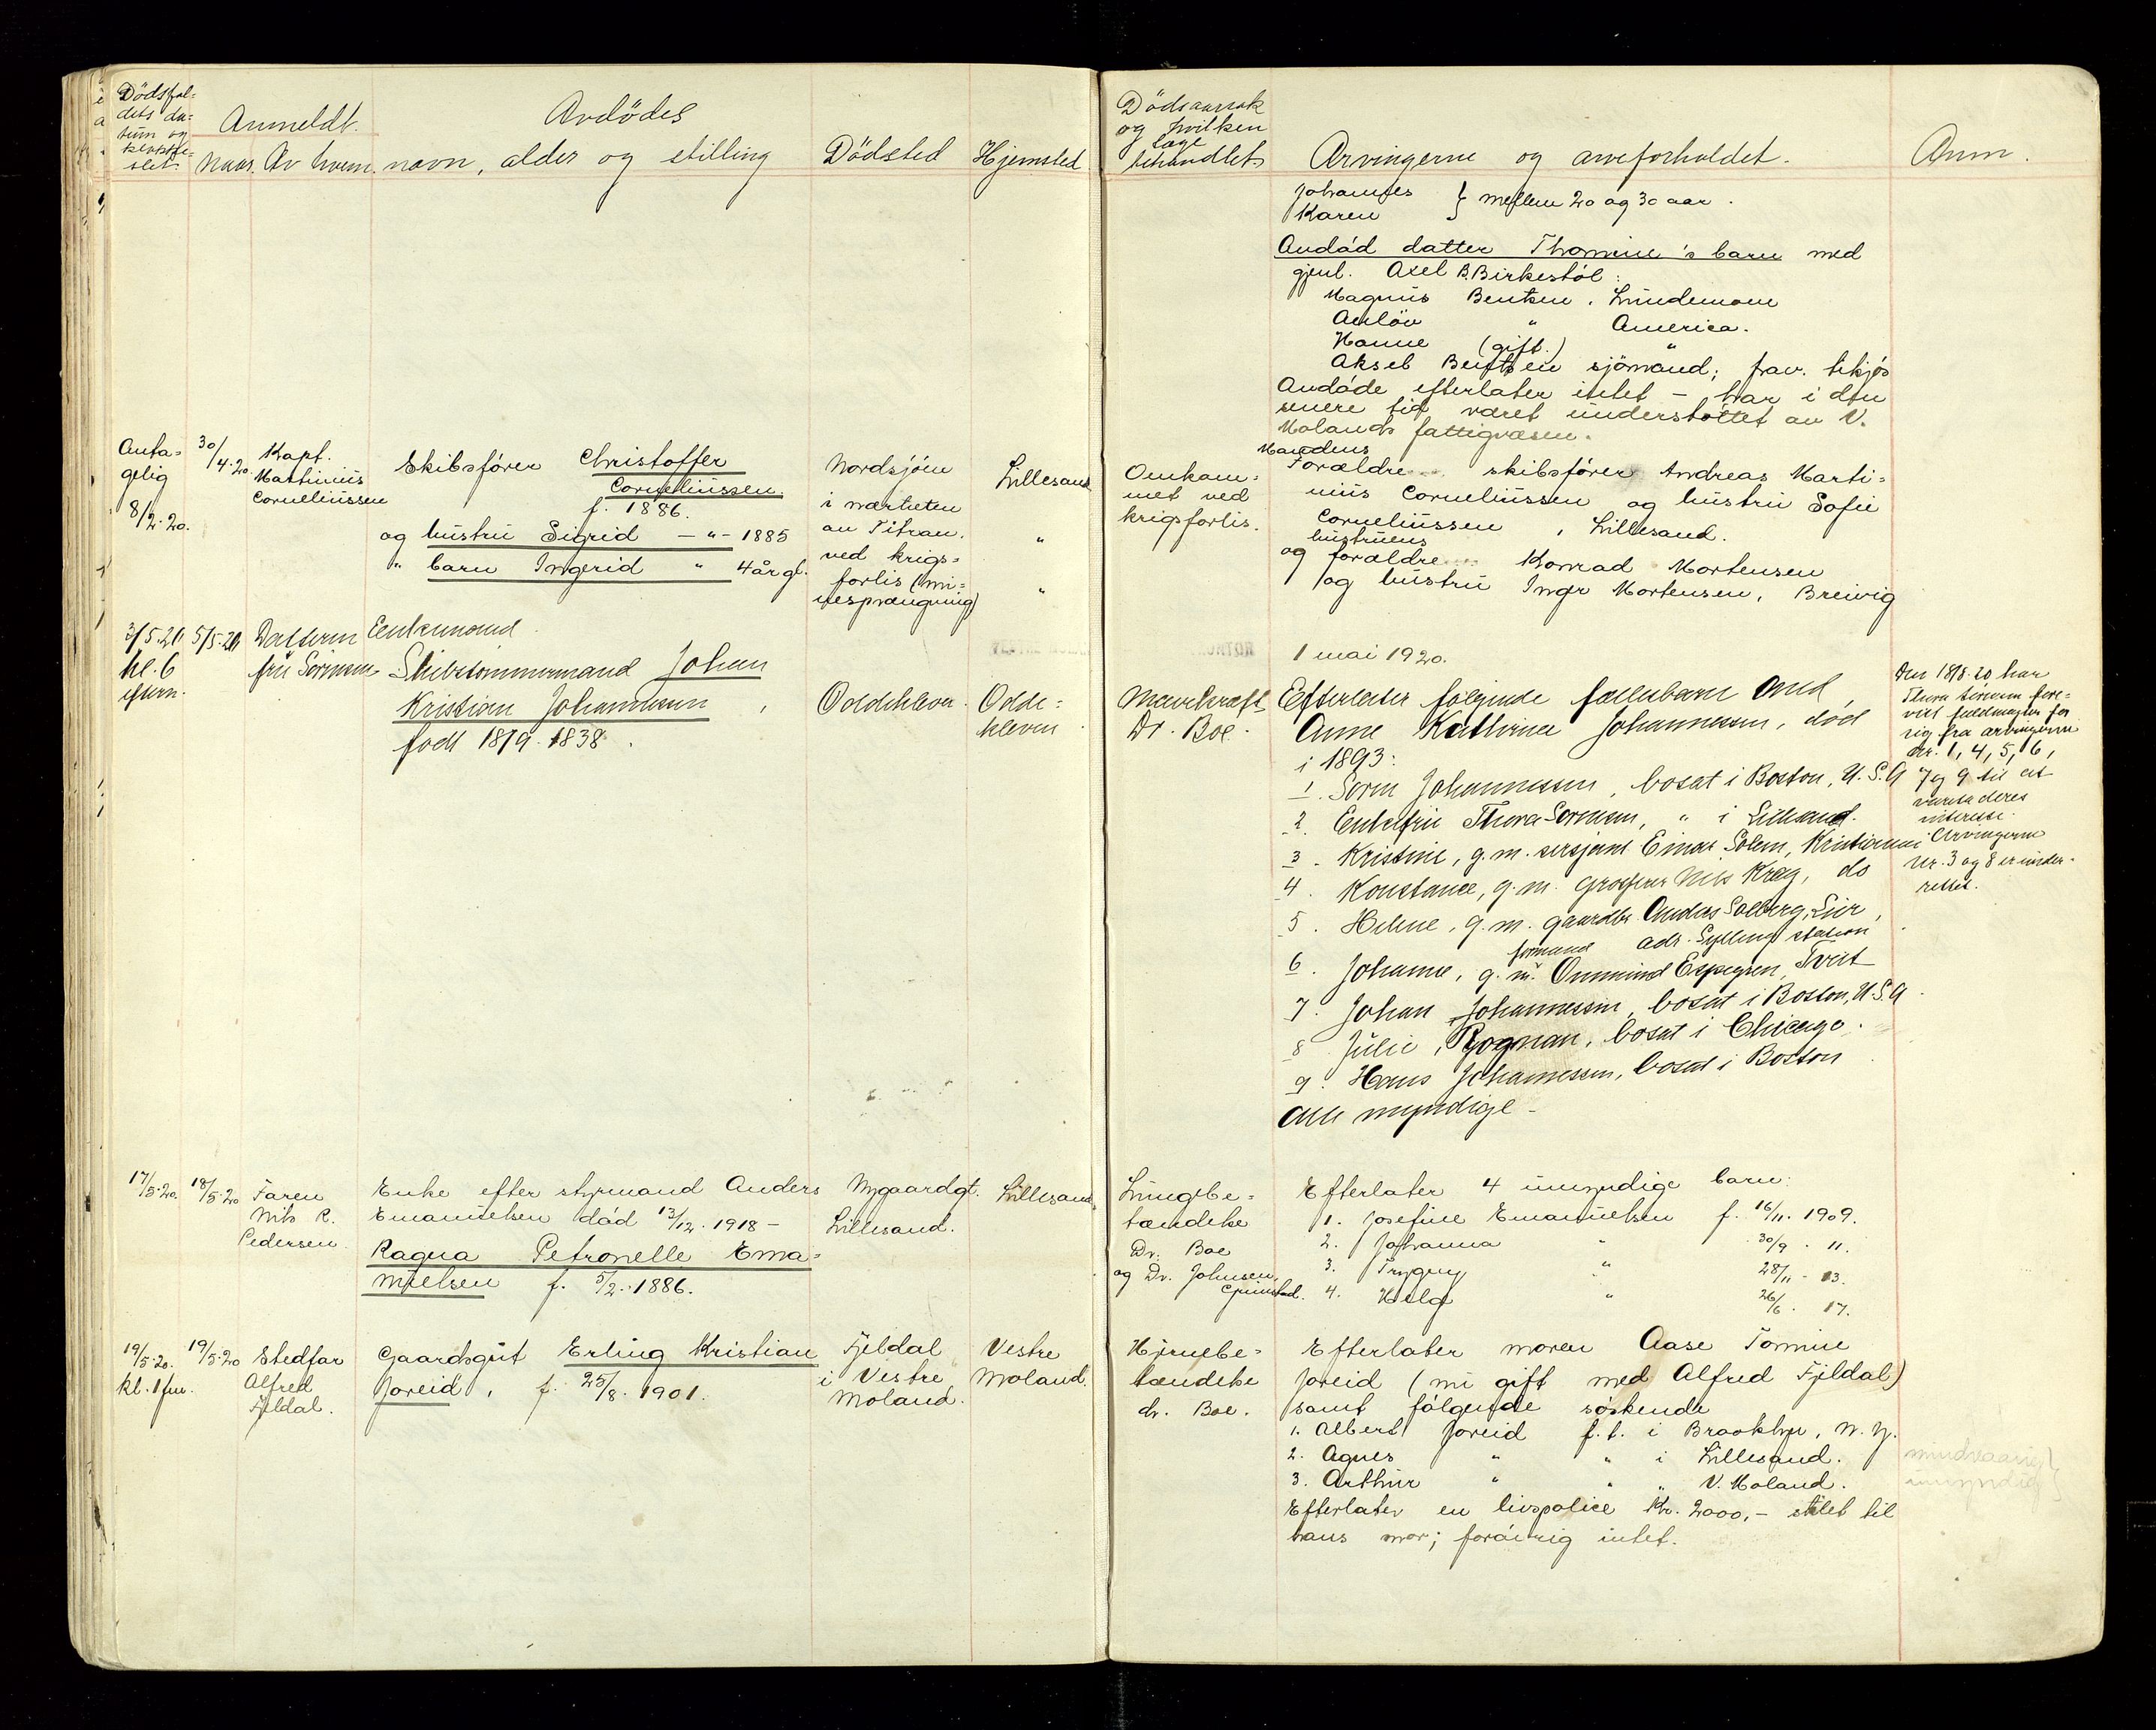 Dödsfal=
dets da=
tum og
klokke=
slet.
Anmeldt.
Naar. Av hvem.
Avdödes
navn, alder og stilling
Dödsted
Hjemsted
Dödsaarsak
og hvilken
læge
behandlet
Arvingerne og arveforholdet.
Anm.
Johannes } mellem 20 og 30 aar.
Karen
Avdöd datter Thomine's barn med
gjenl. Axel B. Birkestöl:
Magnus Bentsen, Lindemoen
Anlöv " America.
Hanne (gift.) "
Aksel Bentsen sjömand; frav. tilsjös
Avdöde efterlater intet – har i den
senere tid været understöttet av V.
Molands fattigvæsen.
Anta=
gelig
8/2.20.
30/4.20.
Kapt.
Mathinius
Corneliussen
Skibsförer Christoffer
Corneliussen.
f. 1886.
og hustru Sigrid — " — 1885
" barn Ingerid " 4 år gl.
Nordsjöen
i nærheten
av Titran.
ved krigs=
forlis (mi=
nesprængning)
Lillesand
"
"
Omkom=
met ved
krigsforlis.
Mandens
Forældre skibsförer Andreas Marti=
nius Corneliussen og hustru Sofie
Corneliussen, Lillesand.
hustruens
og forældre Konrad Mortensen
og hustru Inger Mortensen, Breivig
1 mai 1920.
3/5.20
kl. 6
eftern.
5/5.20
Datteren
fru Sörensen
Enkemand
Skibstömmermand Johan
Kristian Johannessen,
födt 18/9.1838.
Oddekleven.
Odde=
kleven
Mavekræft
Dr. Boe.
Efterlater følgende fællesbarn med
Anne Kathrine Johannessen, död
i 1893:
1. Sören Johannessen, bosat i Boston, U.S.A
2. Enkefru Thora Sörensen, " i Lillesand.
3. Kristine, g.m. sersjant Einar Solem, Kristiania
4. Konstance, g.m. grosserer Nils Krog, do
5. Helene, g.m. gaardbr. Anders Solberg, Lier,
adr. Sylling station
formand
6. Johanne, g.m. Ommund Espegren, Tveit
7. Johan Johannessen, bosat i Boston, U.S.A.
8. Julie, Rognan, bosat i Chicago.
9. Hans Johannessen, bosat i Boston
Alle myndige –
Den 18/5.20 har
Thora Sörensen fore=
vist fuldmagter for
sig fra arvingerne
nr. 1, 4, 5, 6,
7 og 9 til at
vareta deres
interesse.
Arvingerne
nr. 3 og 8 er under=
rettet.
17/5.20.
18/5.20
Faren
Nils R.
Pedersen
Enke efter styrmand Anders
Emanuelsen död 13/12.1918 –
Ragna Petronelle Ema=
nuelsen f. 5/2.1886.
Nygaardgt.
Lillesand.
Lillesand.
Lungebe=
tændelse
Dr. Boe
og Dr. Johnsen,
Grimstad.
Efterlater 4 umyndige barn:
1. Josefine Emanuelsen f. 16/11.1909.
2. Johanna " 30/9. 11.
3. Trygvy " 28/11. 13.
4. Helg " 26/6. 17.
19/5.20.
kl. 1 fm.
19/5.20
Stedfar
Alfred
Fjeldal.
Gaardsgut Erling Kristian
Joreid, f. 25/8.1901.
Fjeldal
i Vestre
Moland.
Vestre
Moland.
Hjernebe=
tændelse
dr. Boe.
Efterlater moren Aase Tomine
Joreid (nu gift med Alfred Fjeldal)
samt fölgende söskende
1. Albert Joreid f.t. i Brooklyn, N.Y.
2. Agnes " " i Lillesand.
3. Arthur " " V. Moland.
mindreaarig
umyndig }
Efterlater en livspolice kr. 2000,– stilet til
hans mor; forövrig intet.